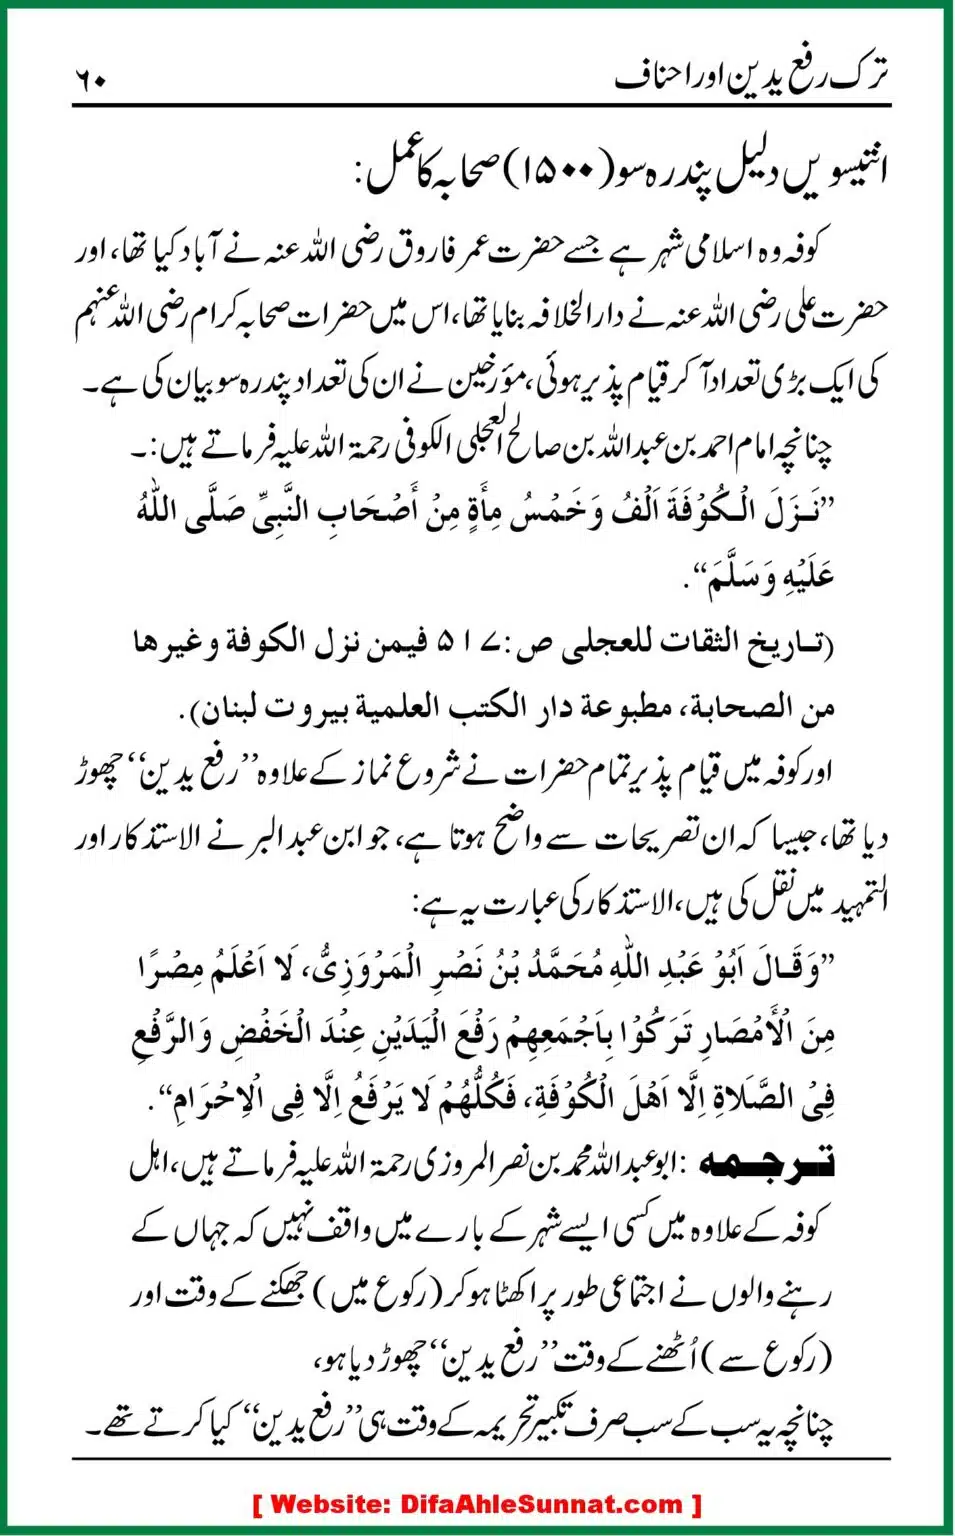 ترک رفع یدین اور احناف ٦٠
انتیسویں دلیل پندرہ سو (۱۵۰۰) صحابہ کا عمل:
کوفہ وہ اسلامی شہر ہے جسے حضرت عمر فاروق رضی اللہ عنہ نے آباد کیا تھا، اور
حضرت علی رضی اللہ عنہ نے دارالخلافہ بنایا تھا، اس میں حضرات صحابہ کرام رضی اللہ عنہم
کی ایک بڑی تعداد آ کر قیام پذیر ہوئی، مؤرخین نے ان کی تعداد پندرہ سو بیان کی ہے۔
چنانچہ امام احمد بن عبداللہ بن صالح العجلی الکوفی رحمۃ اللہ علیہ فرماتے ہیں:۔
”نَـزَلَ الْـكُوْفَةَ اَلْفُ وَخَمْسُ مِأَةٍ مِنْ أَصْحَابِ النَّبِيِّ صَلَّى اللّٰهُ
عَلَيْهِ وَسَلَّمَ“.
(تـاريخ الثقات للعجلى ص: ۵۱۷ فيمن نزل الكوفة وغيرها
من الصحابة، مطبوعة دار الكتب العلمية بيروت لبنان).
اور کوفہ میں قیام پذیر تمام حضرات نے شروع نماز کے علاوہ ”رفع یدین“ چھوڑ
دیا تھا، جیسا کہ ان تصریحات سے واضح ہوتا ہے، جو ابن عبدالبر نے الاستذکار اور
التمہید میں نقل کی ہیں، الاستذکار کی عبارت یہ ہے:
”وَقَـالَ اَبُوْ عَبْدِ اللّٰهِ مُحَمَّدُ بْنُ نَصْرِ الْمَرْوَزِيُّ، لَا اَعْلَمُ مِصْرًا
مِنَ الْأَمْصَارِ تَرَكُوْا بِاَجْمَعِهِمْ رَفْعَ الْيَدَيْنِ عِنْدَ الْخَفْضِ وَالرَّفْعِ
فِيْ الصَّلَاةِ اِلَّا اَهْلَ الْكُوْفَةِ، فَكُلُّهُمْ لَا يَرْفَعُ اِلَّا فِى الْاِحْرَامِ“.
تـرجـمـه: ابوعبداللہ محمد بن نصر المروزی رحمۃ اللہ علیہ فرماتے ہیں، اہل
کوفہ کے علاوہ میں کسی ایسے شہر کے بارے میں واقف نہیں کہ جہاں کے
رہنے والوں نے اجتماعی طور پر اکھٹا ہو کر (رکوع میں) جھکنے کے وقت اور
(رکوع سے) اُٹھنے کے وقت ”رفع یدین“ چھوڑ دیا ہو،
چنانچہ یہ سب کے سب صرف تکبیر تحریمہ کے وقت ہی ”رفع یدین“ کیا کرتے تھے۔
[ Website: DifaAhleSunnat.com ]